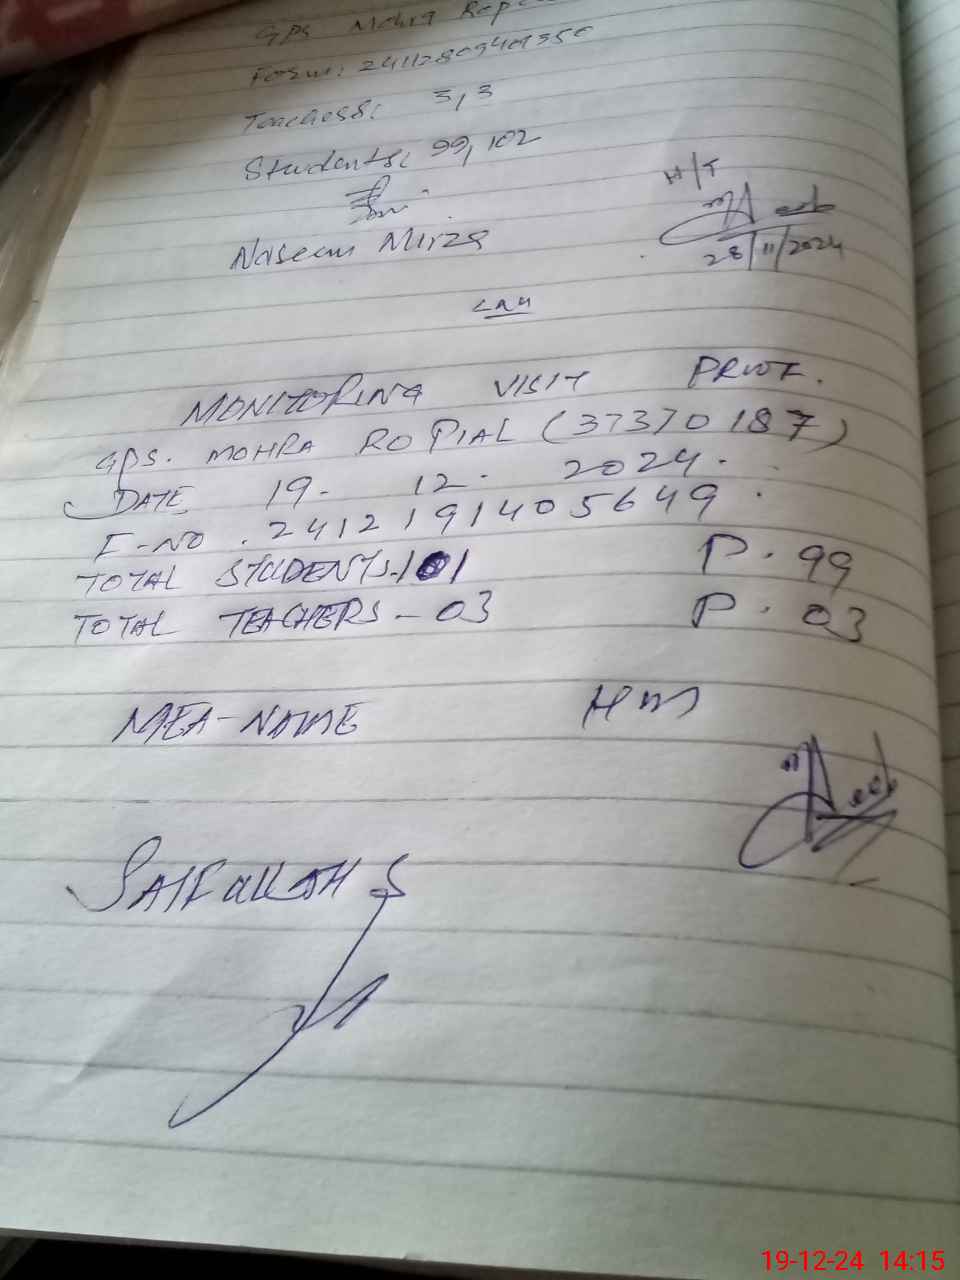 GPS Mohra Rop
Form: 24112809409350
Teachers: 3, 3
Students: 99, 102
H/T
Naseem Mirza
28/11/2024
MONITORING VISIT PROF.
GPS. MOHRA ROPIAL (37370187)
DATE 19. 12. 2024.
F-NO. 2412191405649.
TOTAL STUDENTS-101 P. 99
TOTAL TEACHERS-03 P. 03
MEA-NAME HM
SAIFULLAH S
19-12-24 14:15